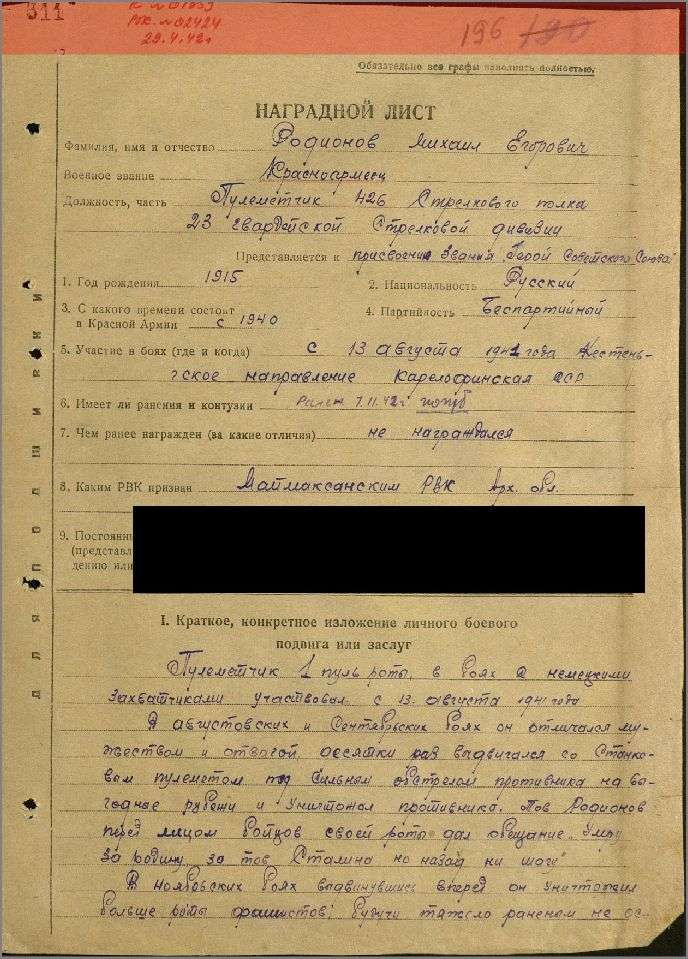 311
К №01653
РК. №02424
29.4.42г
196 190
Обязательно все графы заполнять полностью.
НАГРАДНОЙ ЛИСТ
Фамилия, имя и отчество Родионов Михаил Егорович
Военное звание Красноармеец
Должность, часть Пулеметчик 426 Стрелкового полка
23 гвардейской Стрелковой дивизии
Представляется к присвоению Звания Герой Советского Союза
1. Год рождения 1915 2. Национальность Русский
3. С какого времени состоит
в Красной Армии с 1940 4. Партийность Беспартийный
5. Участие в боях (где и когда) с 13 августа 1941 года Кестень-
гское направление Карелофинская ССР
6. Имеет ли ранения и контузии Ранен 7.11.42г
7. Чем ранее награжден (за какие отличия) не награждался
8. Каким РВК призван Маймаксанским РВК Арх. обл.
9. Постоянн
(представл
дению или
I. Краткое, конкретное изложение личного боевого
подвига или заслуг
Пулеметчик 1 пуль роты, в боях с немецкими
захватчиками участвовал с 13 августа 1941 года
В августовских и Сентябрьских боях он отличался му-
жеством и отвагой, десятки раз выдвигался со Станко-
вым пулеметом под Сильным обстрелом противника на вы-
годные рубежи и Уничтожал противника. Тов Родионов
перед лицом бойцов своей роты дал обещание "Умру
за родину, за тов Сталина но назад ни шагу"
В ноябрьских боях выдвинувшись вперед он уничтожил
больше роты фашистов; Будучи тяжело раненым не ос-
ДЛЯ ПОДШИВКИ